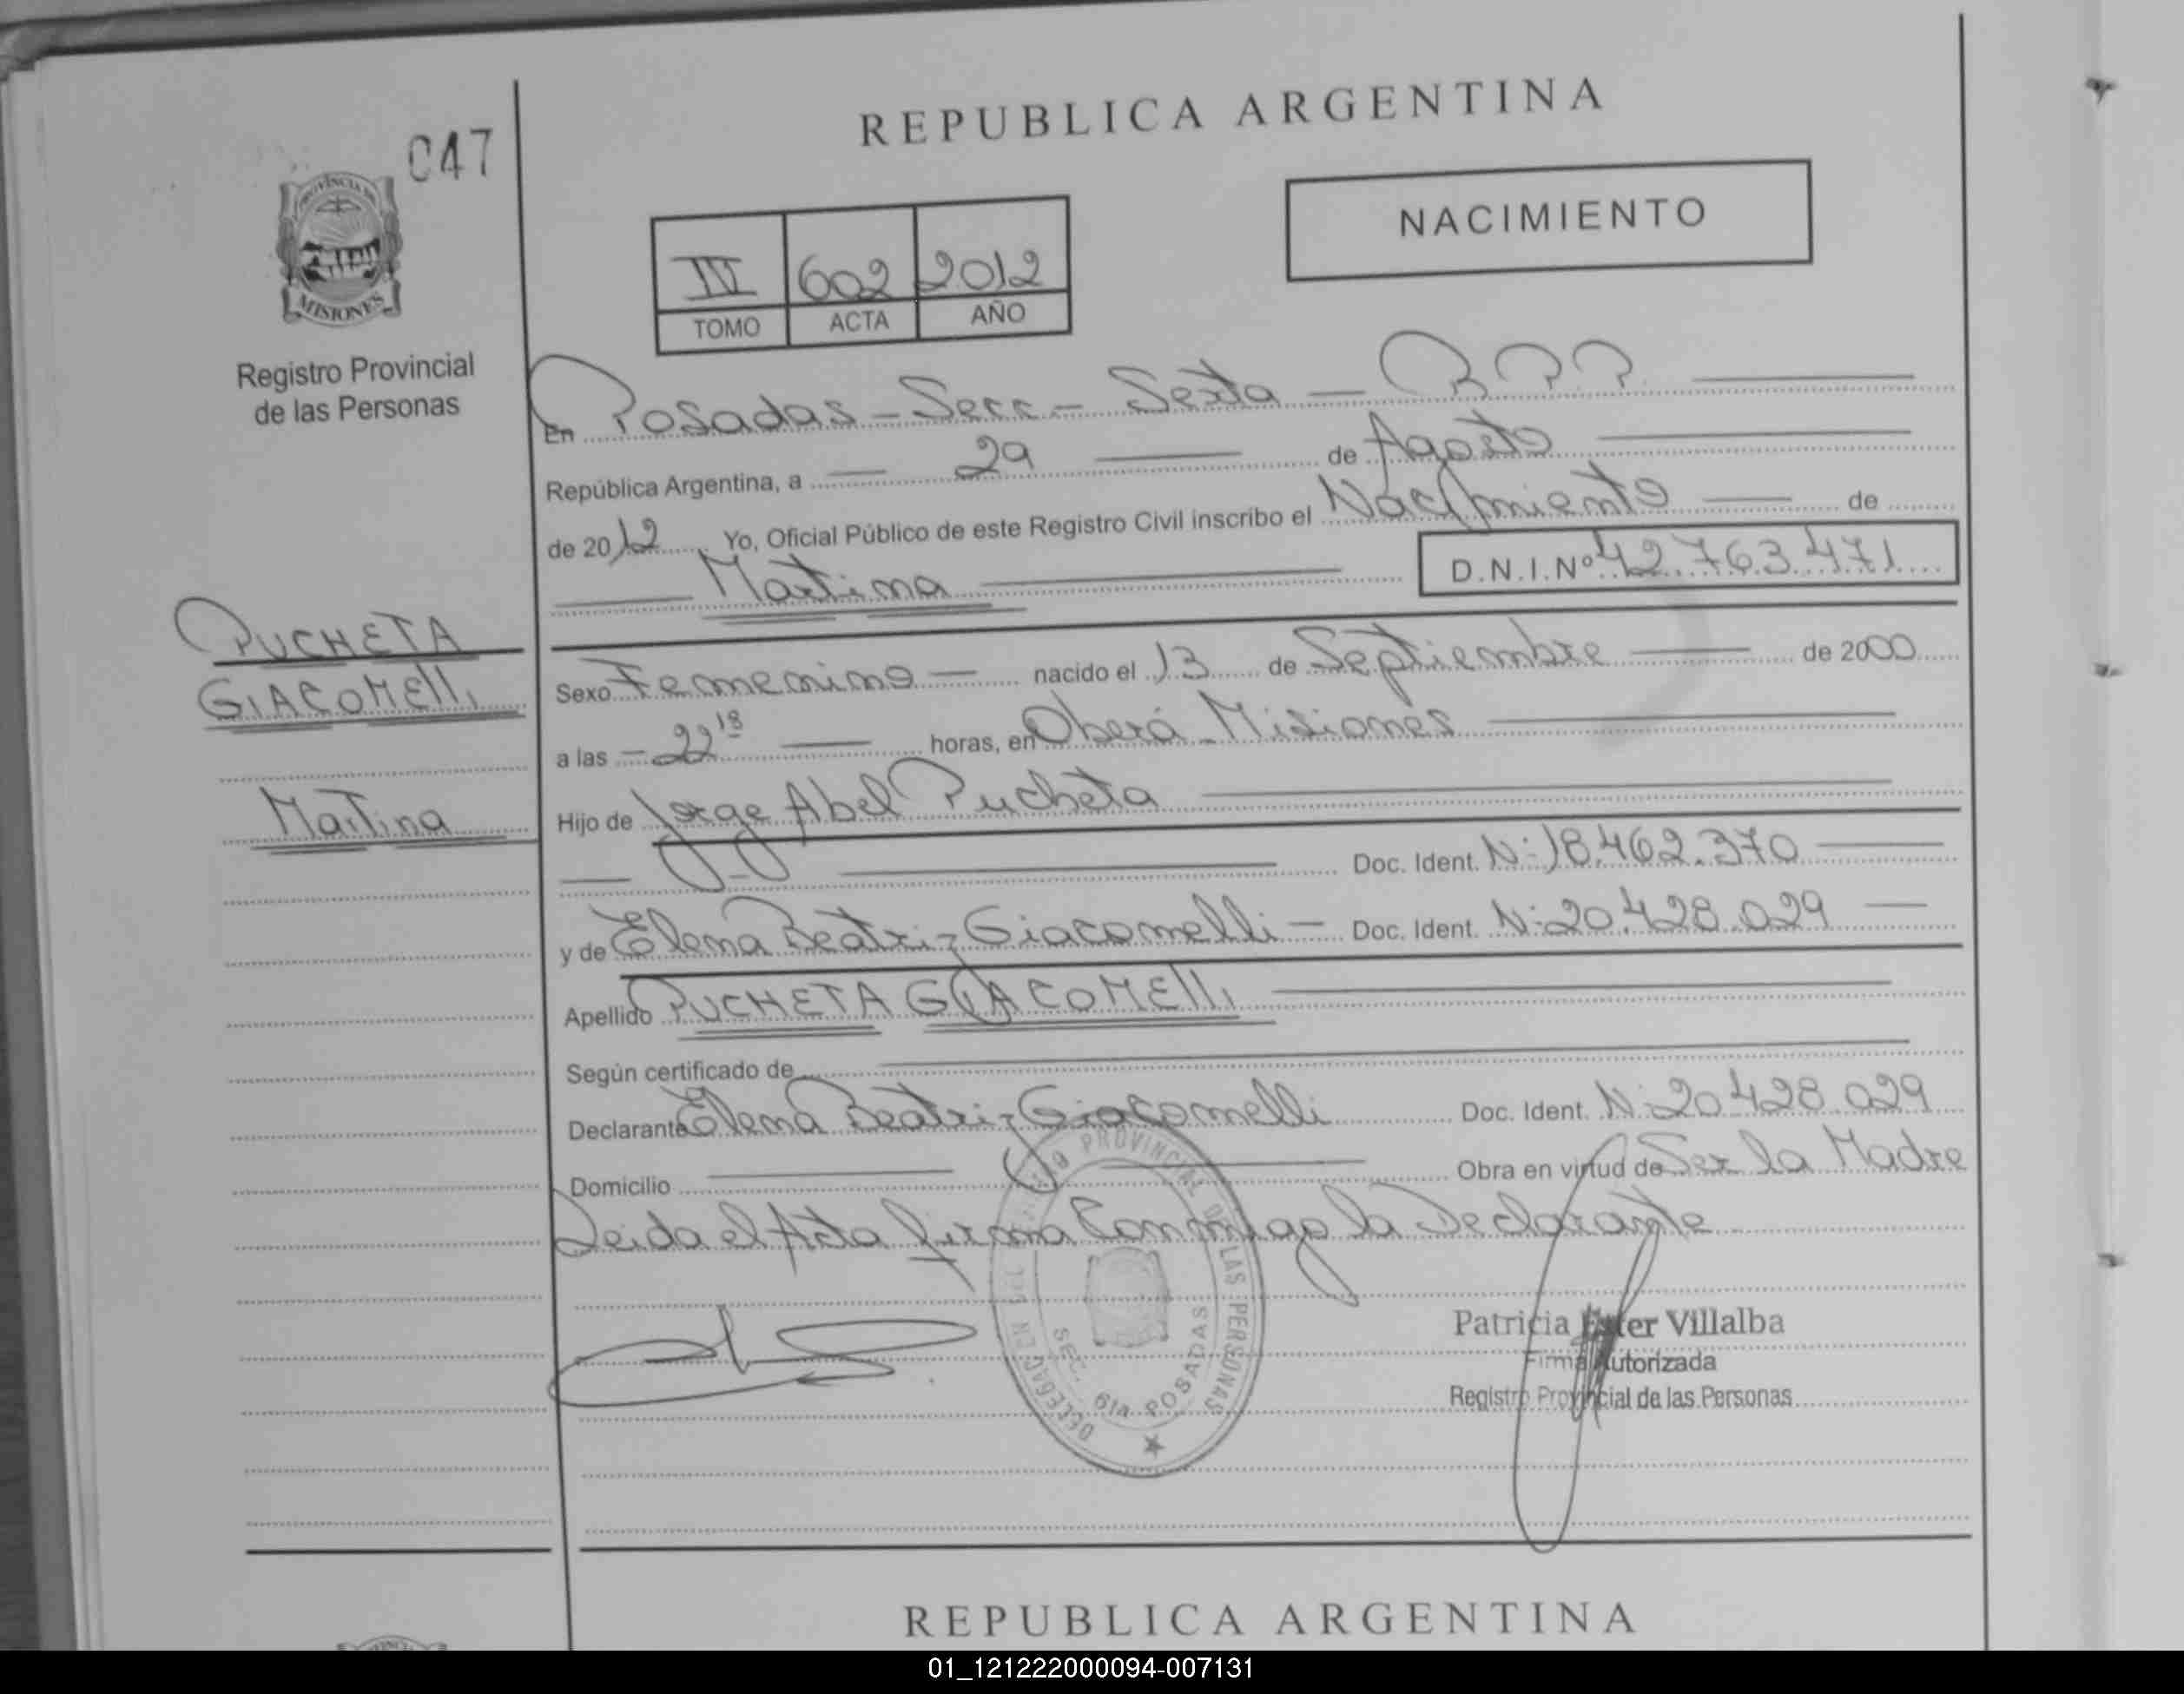 REPUBLICA ARGENTINA
047
PROVINCIA DE
MISIONES
Registro Provincial
de las Personas
NACIMIENTO
IV 602 2012
TOMO ACTA AÑO
En Posadas - Secc - Sexta - R.P.P.
República Argentina, a 29 de Agosto
de 2012 Yo, Oficial Público de este Registro Civil inscribo el Nacimiento de
Martina D.N.I.Nº 42.763.471
PUCHETA
GIACOMELLI
Martina
Sexo Femenino nacido el 13 de Septiembre de 2000
a las 22 18 horas, en Oberá - Misiones
Hijo de Jorge Abel Pucheta
Doc. Ident. Nº 18.462.370
y de Elena Beatriz Giacomelli Doc. Ident. Nº 20.428.029
Apellido PUCHETA GIACOMELLI
Según certificado de
Declarante Elena Beatriz Giacomelli Doc. Ident. Nº 20.428.029
Domicilio Obra en virtud de Ser la Madre
Leida el Acta firma Conmigo la Declarante
PROVINCIAL DE LAS PERSONAS
DELEGAC
SEC. 6ta POSADAS
Patricia Ester Villalba
Firma Autorizada
Registro Provincial de las Personas
REPUBLICA ARGENTINA
01_121222000094-007131